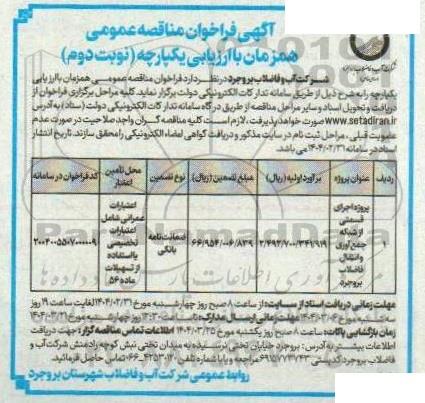 آگهی فراخوان مناقصه عمومی
همزمان با ارزیابی یکپارچه (نوبت دوم)
شرکت آب و فاضلاب بروجرد در نظر دارد فراخوان مناقصه عمومی همزمان با ارزیابی
یکپارچه را به شرح ذیل از طریق سامانه تدارکات الکترونیکی دولت برگزار نماید. کلیه مراحل برگزاری فراخوان از
دریافت و تحویل اسناد و سایر مراحل مناقصه از طریق درگاه سامانه تدارکات الکترونیکی دولت (ستاد) به آدرس
www.setadiran.ir صورت خواهد پذیرفت، لازم است کلیه مناقصه گران واجد صلاحیت در صورت عدم
عضویت قبلی، مراحل ثبت نام در سایت مذکور و دریافت گواهی امضاء الکترونیکی را محقق سازند. تاریخ انتشار
اسناد در سامانه ۱۴۰۴/۰۲/۳۱ می باشد.
ردیف عنوان پروژه برآورد اولیه (ریال) مبلغ تضمین (ریال) نوع تضمین محل تأمین اعتبار کد فراخوان در سامانه
۱ پروژه اجرای قسمتی از شبکه جمع آوری و انتقال فاضلاب بروجرد ضمانت نامه بانکی اعتبارات عمرانی شامل اعتبارات تخصیصی با استفاده از تسهیلات ماده ۵۶ ۲۰۰۴۰۰۵۵۰۷۰۰۰۰۰۹
مهلت زمانی دریافت اسناد از سایت: از ساعت ۸ صبح روز چهارشنبه مورخ ۱۴۰۴/۰۲/۳۱ لغایت ساعت ۱۹ روز
مهلت زمانی ارسال مدارک:
زمان بازگشایی پاکات: ساعت ۸ صبح روز یکشنبه مورخ ۱۴۰۴/۰۳/۲۵ اطلاعات تماس مناقصه گزار: جهت دریافت
اطلاعات بیشتر به آدرس: بروجرد خیابان تختی نرسیده به میدان تختی نبش کوچه رادمنش شرکت آب و
فاضلاب بروجرد کدپستی ۶۹۱۵۷۷۳۷۴۳ مراجعه و یا با شماره تلفن ۰۶۶-۴۲۵۳۰۱۲۰ تماس حاصل فرمائید.
روابط عمومی شرکت آب و فاضلاب شهرستان بروجرد